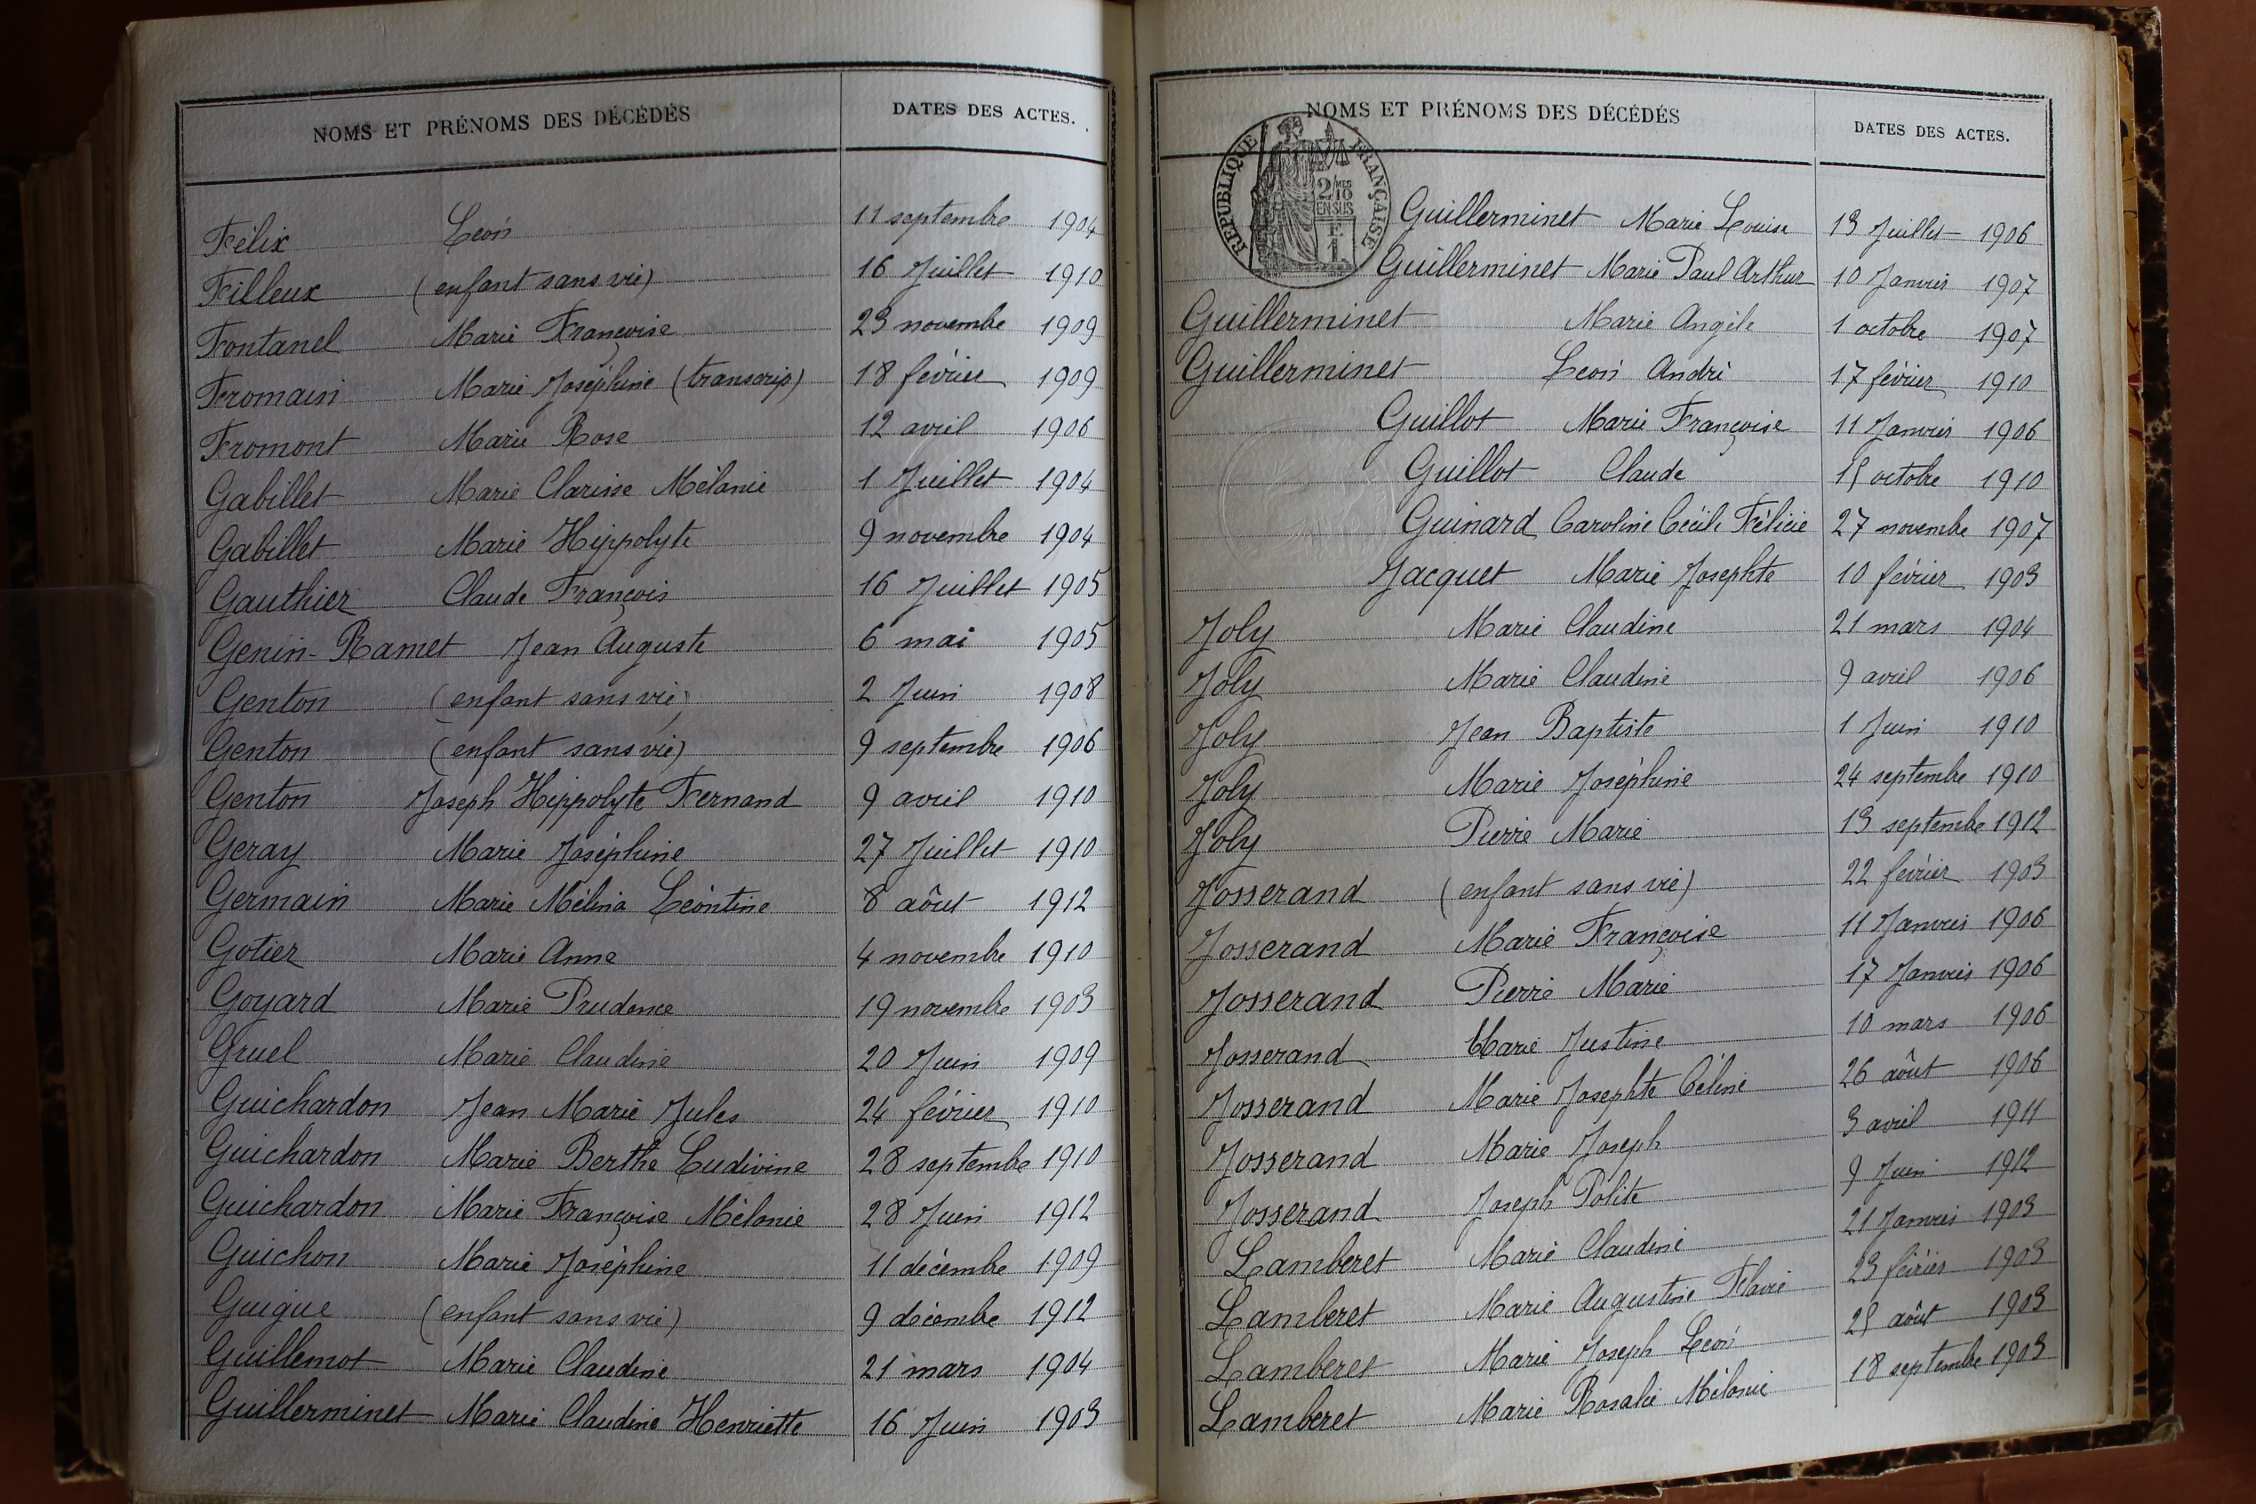 NOMS ET PRÉNOMS DES DÉCÉDÉS DATES DES ACTES.
Félix Léon 11 septembre 1904
Filleux (enfant sans vie) 16 Juillet 1910
Fontanel Marie Françoise 23 novembre 1909
Fromain Marie Joséphine (transcrip) 18 février 1909
Fromont Marie Rose 12 avril 1906
Gabillet Marie Clarisse Mélanie 1 Juillet 1904
Gabillet Marie Hippolyte 9 novembre 1904
Gauthier Claude François 16 Juillet 1905
Genin-Ramet Jean Auguste 6 mai 1905
Genton (enfant sans vie) 2 Juin 1908
Genton (enfant sans vie) 9 septembre 1906
Genton Joseph Hippolyte Fernand 9 avril 1910
Geray Marie Joséphine 27 Juillet 1910
Germain Marie Mélina Léontine 8 aôut 1912
Gotier Marie Anne 4 novembre 1910
Goyard Marie Prudence 19 novembre 1903
Gruel Marie Claudine 20 Juin 1909
Guichardon Jean Marie Jules 24 février 1910
Guichardon Marie Berthe Ludivine 28 septembre 1910
Guichardon Marie Françoise Mélanie 28 Juin 1912
Guichon Marie Joséphine 11 décembre 1909
Guigue (enfant sans vie) 9 décembre 1912
Guillemot Marie Claudine 21 mars 1904
Guillerminet Marie Claudine Henriette 16 Juin 1903
NOMS ET PRÉNOMS DES DÉCÉDÉS DATES DES ACTES.
RÉPUBLIQUE FRANÇAISE
2/MES 10
EN SUS
1 F.
Guillerminet Marie Louise 13 Juillet 1906
Guillerminet Marie Paul Arthur 10 Janvier 1907
Guillerminet Marie Angèle 1 octobre 1907
Guillerminet Léon André 17 février 1910
Guillot Marie Françoise 11 Janvier 1906
Guillot Claude 15 octobre 1910
Guinard Caroline Cécile Félicie 27 novembre 1907
Jacquet Marie Josephte 10 février 1903
Joly Marie Claudine 21 mars 1904
Joly Marie Claudine 9 avril 1906
Joly Jean Baptiste 1 Juin 1910
Joly Marie Joséphine 24 septembre 1910
Joly Pierre Marie 13 septembre 1912
Josserand (enfant sans vie) 22 février 1903
Josserand Marie Françoise 11 Janvier 1906
Josserand Pierre Marie 17 Janvier 1906
Josserand Marie Justine 10 mars 1906
Josserand Marie Josephte Céline 26 aôut 1906
Josserand Marie Joseph 3 avril 1911
Josserand Joseph Polite 9 Juin 1912
Lamberet Marie Claudine 21 Janvier 1903
Lamberet Marie Augustine Flavie 23 février 1903
Lamberet Marie Joseph Léon 25 aôut 1903
Lamberet Marie Rosalie Mélanie 18 septembre 1903